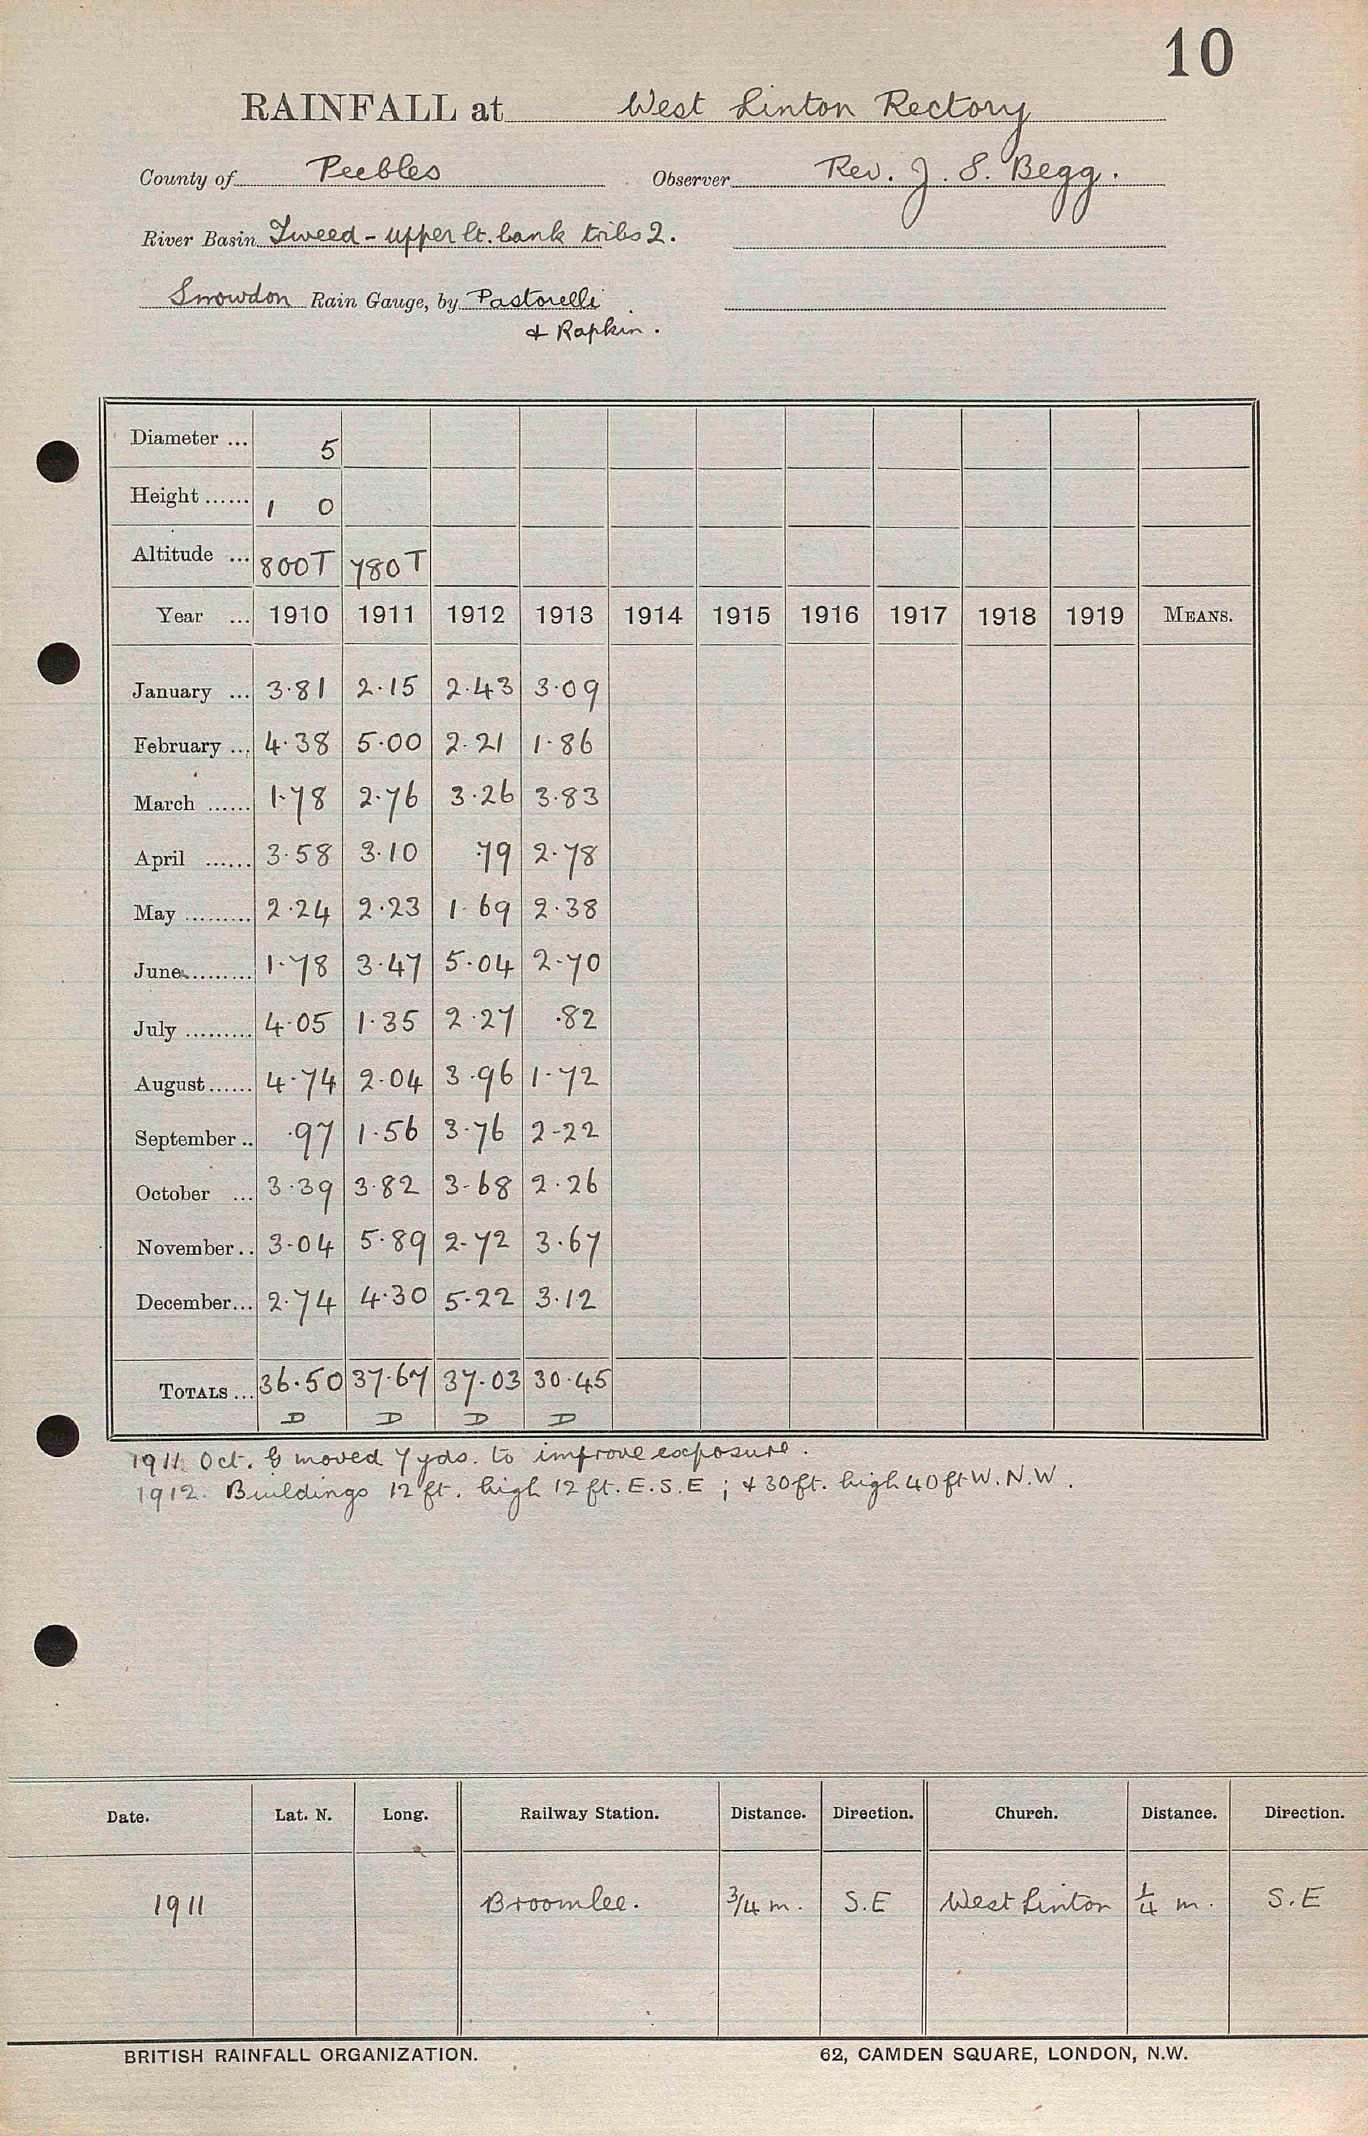 10
RAINFALL at West Linton Rectory
County of Peebles Observer Rev. J. S. Begg.
River Basin Tweed - upper lt. bank tribs 2.
Snowdon Rain Gauge, by Pastorelli
& Rapkin.
Diameter ... 5
Height ...... 1 0
Altitude ... 800T 780T
Year ... 1910 1911 1912 1913 1914 1915 1916 1917 1918 1919 MEANS.
January ... 3.81 2.15 2.43 3.09
February ... 4.38 5.00 2.21 1.86
March ...... 1.78 2.76 3.26 3.83
April ...... 3.58 3.10 .79 2.78
May ......... 2.24 2.23 1.69 2.38
June ......... 1.78 3.47 5.04 2.70
July ......... 4.05 1.35 2.27 .82
August ...... 4.74 2.04 3.96 1.72
September .. .97 1.56 3.76 2.22
October ... 3.39 3.82 3.68 2.26
November .. 3.04 5.89 2.72 3.67
December ... 2.74 4.30 5.22 3.12
TOTALS ... 36.50 37.67 37.03 30.45
D D D D
1911 Oct. G moved 7 yds. to improve exposure.
1912. Buildings 12 ft. high 12 ft. E.S.E ; & 30 ft. high 40 ft W.N.W.
Date. Lat. N. Long. Railway Station. Distance. Direction. Church. Distance. Direction.
1911 Broomlee. 3/4 m. S.E West Linton 1/4 m. S.E
BRITISH RAINFALL ORGANIZATION. 62, CAMDEN SQUARE, LONDON, N.W.